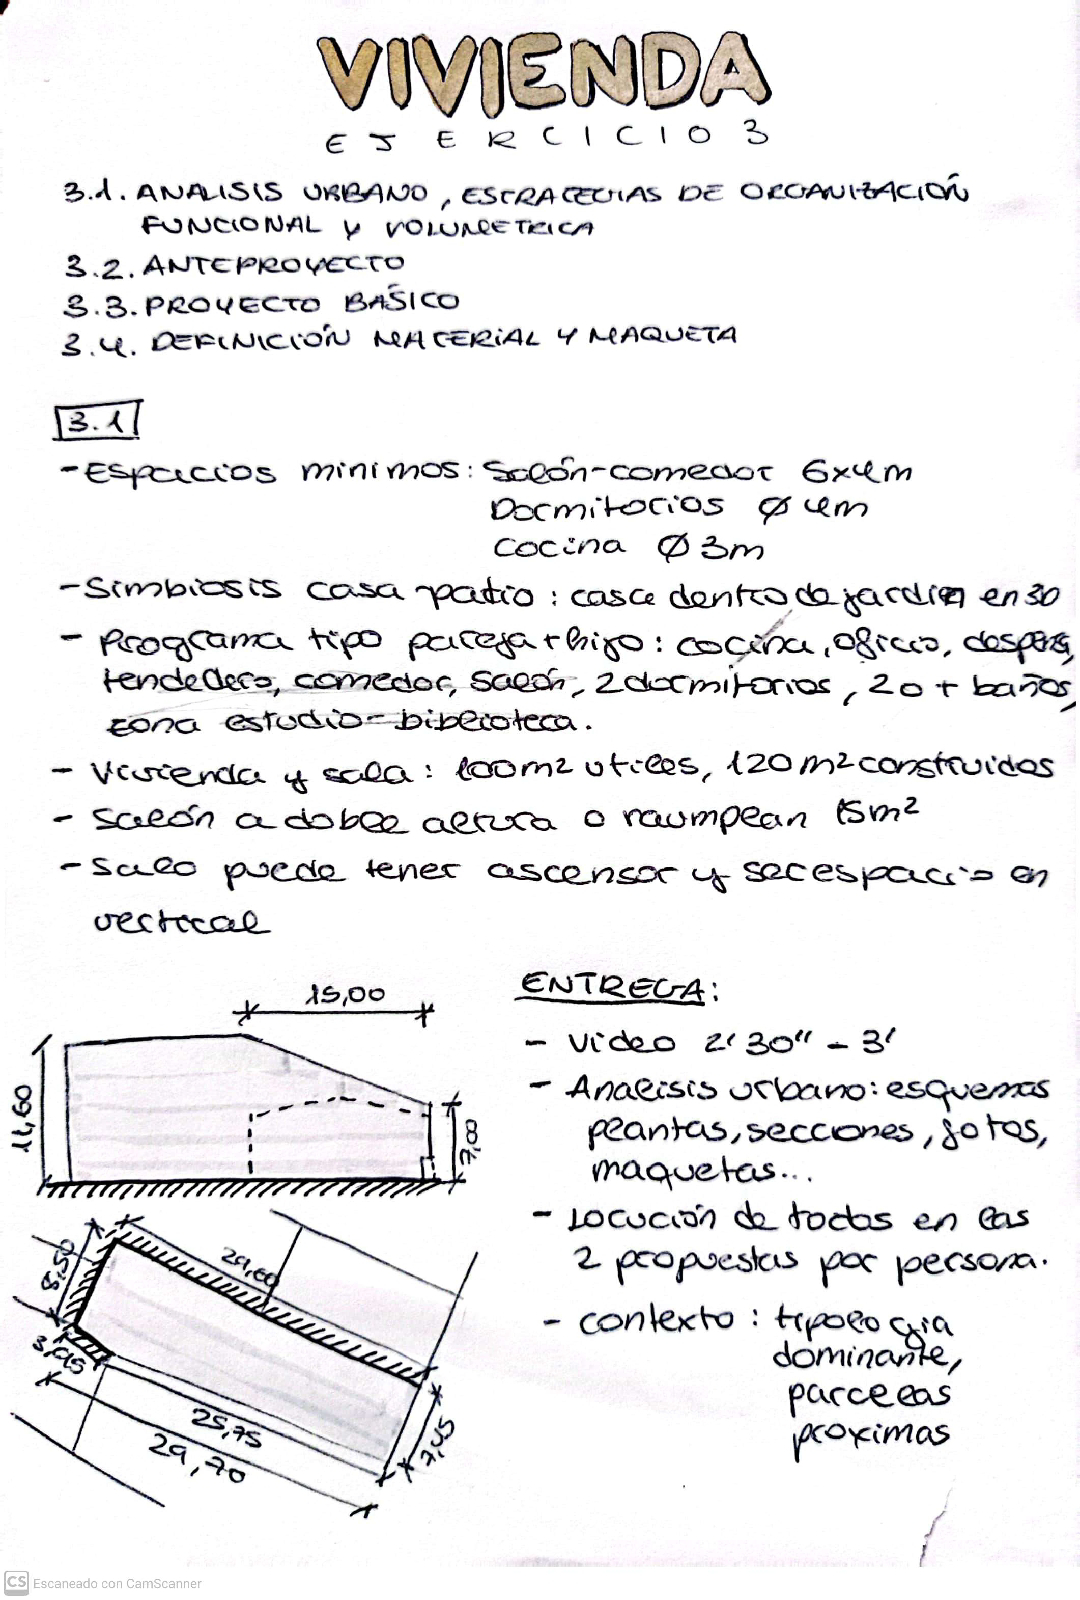 VIVIENDA
EJERCICIO 3
3.1. ANALISIS URBANO, ESTRATEGIAS DE ORGANIZACIÓN
FUNCIONAL Y VOLUMETRICA
3.2. ANTEPROYECTO
3.3. PROYECTO BÁSICO
3.4. DEFINICIÓN MATERIAL Y MAQUETA
3.1
- Espacios minimos: Salón-comedor 6x4m
Dormitorios Ø 4m
Cocina Ø 3m
- Simbiosis casa patio: casa dentro de jardin en 3D
- Programa tipo pareja + hijo: cocina, oficio, despensa,
tendedero, comedor, salón, 2 dormitorios, 2 o + baños,
zona estudio-biblioteca.
- Vivienda y sala: 100m2 utiles, 120m2 construidos
- Salón a doble altura o raumplan 15m2
- Salo puede tener ascensor y ser espacio en
vertical
15,00
11,60
7,00
8,50
29,60
3,95
25,75
29,70
7,45
ENTREGA:
- Video 2' 30" - 3'
- Analisis urbano: esquemas
plantas, secciones, fotos,
maquetas...
- Locución de todos en las
2 propuestas por persona.
- contexto: tipologia
dominante,
parcelas
proximas
CS Escaneado con CamScanner